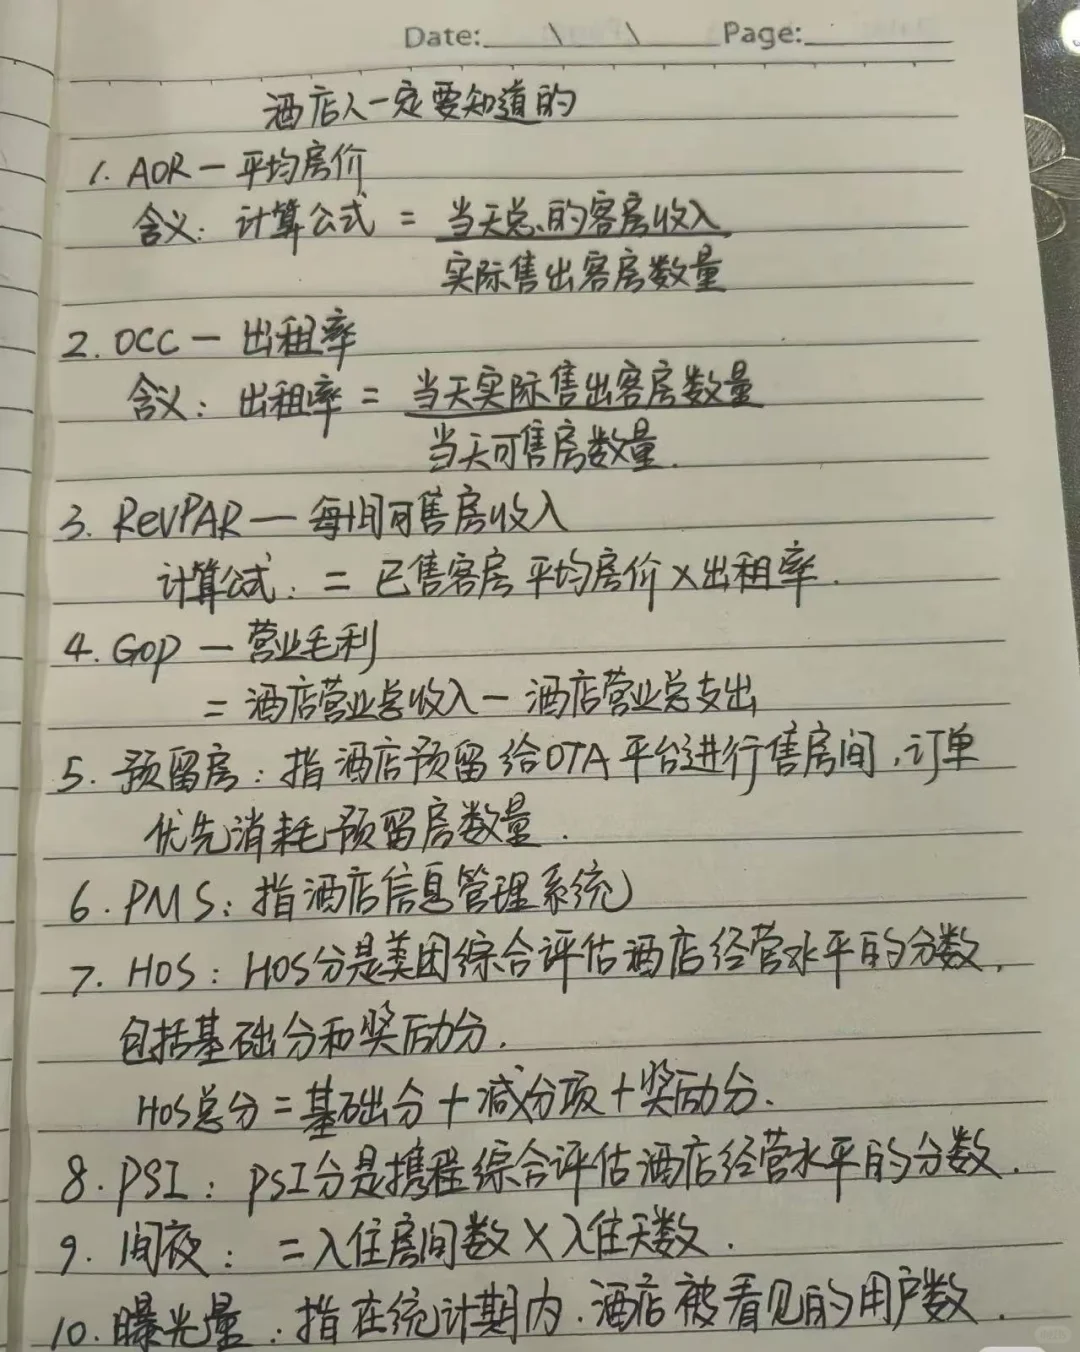 Date: \ \ Page:
酒店人一定要知道的
1. AOR — 平均房价
含义: 计算公式 = 当天总的客房收入
实际售出客房数量
2. OCC — 出租率
含义: 出租率 = 当天实际售出客房数量
当天可售房数量.
3. RevPAR — 每间可售房收入
计算公式: = 已售客房平均房价×出租率.
4. Gop — 营业毛利
= 酒店营业总收入 - 酒店营业总支出
5. 预留房: 指酒店预留给OTA平台进行售房间,订单
优先消耗预留房数量.
6. PMS: 指酒店信息管理系统
7. HOS: HOS分是美团综合评估酒店经营水平的分数,
包括基础分和奖励分.
HOS总分 = 基础分 + 减分项 + 奖励分.
8. PSI: PSI分是携程综合评估酒店经营水平的分数.
9. 间夜: = 入住房间数 × 入住天数.
10. 曝光量: 指在统计期内.酒店被看见的用户数.